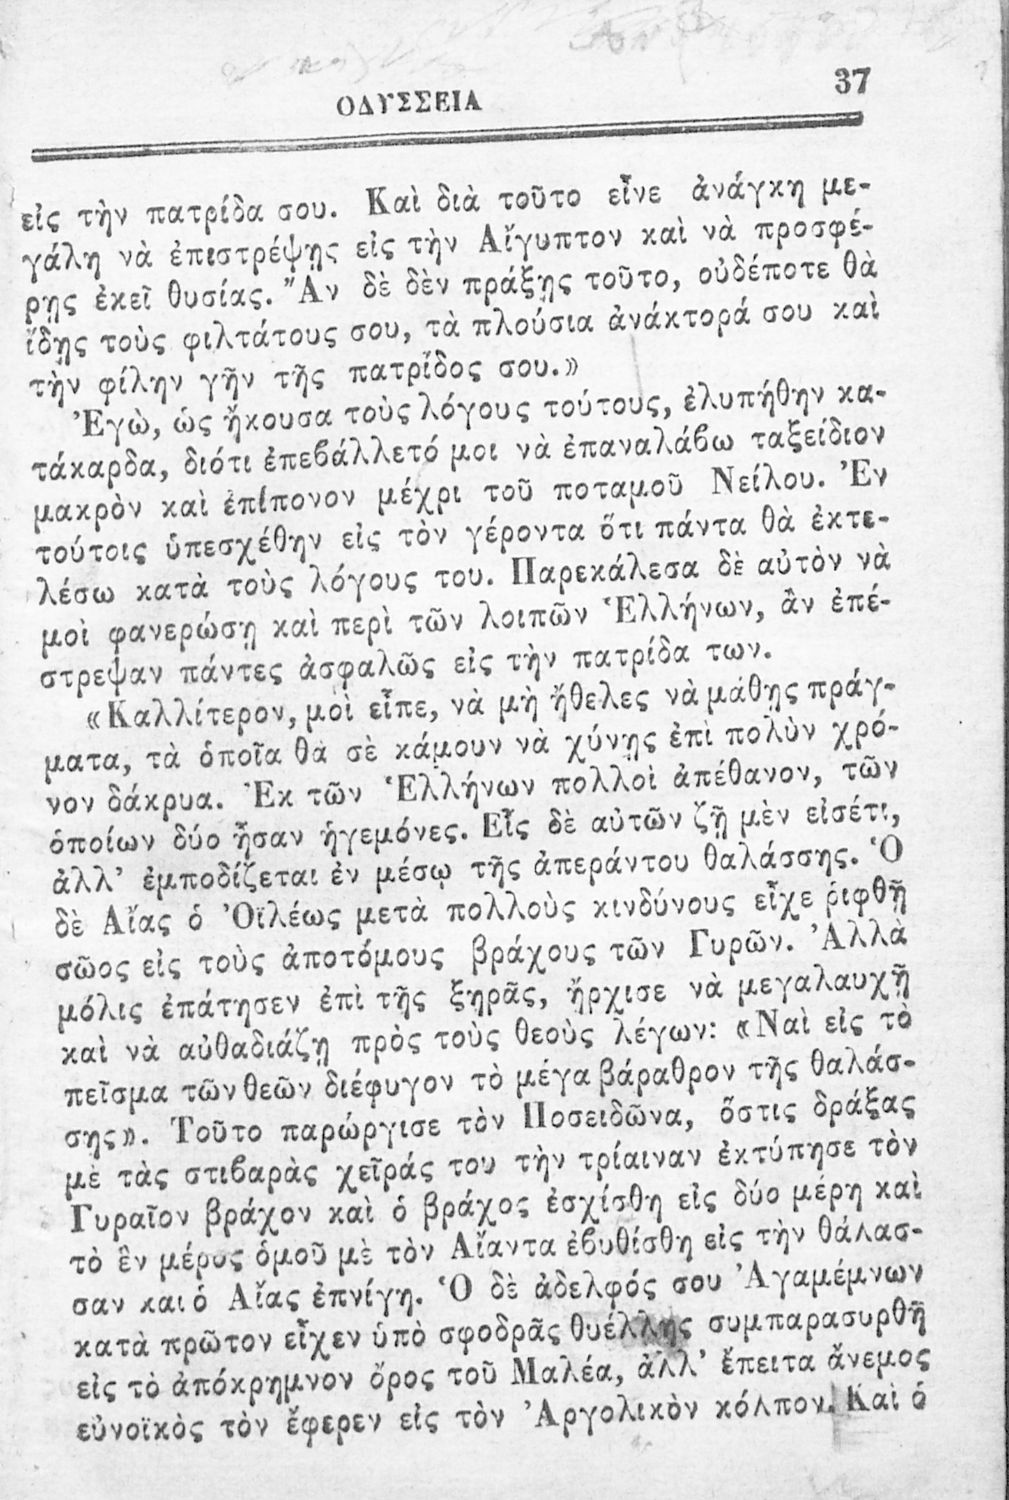 ΟΔΥΣΣΕΙΑ
37
εἰς τὴν πατρίδα σου. Καὶ διὰ τοῦτο εἶνε ἀνάγκη με-
γάλη νὰ ἐπιστρέψῃς εἰς τὴν Αἴγυπτον καὶ νὰ προσφέ-
ρῃς ἐκεῖ θυσίας. Ἂν δὲ δὲν πράξῃς τοῦτο, οὐδέποτε θὰ
ἴδῃς τοὺς φιλτάτους σου, τὰ πλούσια ἀνάκτορά σου καὶ
τὴν φίλην γῆν τῆς πατρίδος σου.»
Ἐγὼ, ὡς ἤκουσα τοὺς λόγους τούτους, ἐλυπήθην κα-
τάκαρδα, διότι ἐπεβάλλετό μοι νὰ ἐπαναλάβω ταξείδιον
μακρὸν καὶ ἐπίπονον μέχρι τοῦ ποταμοῦ Νείλου. Ἐν
τούτοις ὑπεσχέθην εἰς τὸν γέροντα ὅτι πάντα θὰ ἐκτε-
λέσω κατὰ τοὺς λόγους του. Παρεκάλεσα δὲ αὐτὸν νὰ
μοὶ φανερώσῃ καὶ περὶ τῶν λοιπῶν Ἑλλήνων, ἂν ἐπέ-
στρεψαν πάντες ἀσφαλῶς εἰς τὴν πατρίδα των.
«Καλλίτερον, μοὶ εἶπε, νὰ μὴ ἤθελες νὰ μάθῃς πράγ-
ματα, τὰ ὁποῖα θὰ σὲ κάμουν νὰ χύνῃς ἐπὶ πολὺν χρό-
νον δάκρυα. Ἐκ τῶν Ἑλλήνων πολλοὶ ἀπέθανον, τῶν
ὁποίων δύο ἦσαν ἡγεμόνες. Εἷς δὲ αὐτῶν ζῇ μὲν εἰσέτι,
ἀλλ’ ἐμποδίζεται ἐν μέσῳ τῆς ἀπεράντου θαλάσσης. Ὁ
δὲ Αἴας ὁ Ὀϊλέως μετὰ πολλοὺς κινδύνους εἶχε ῥιφθῆ
σῶος εἰς τοὺς ἀποτόμους βράχους τῶν Γυρῶν. Ἀλλὰ
μόλις ἐπάτησεν ἐπὶ τῆς ξηρᾶς, ἤρχισε νὰ μεγαλαυχῇ
καὶ νὰ αὐθαδιάζῃ πρὸς τοὺς θεοὺς λέγων: «Ναὶ εἰς τὸ
πεῖσμα τῶν θεῶν διέφυγον τὸ μέγα βάραθρον τῆς θαλάσ-
σης». Τοῦτο παρώργισε τὸν Ποσειδῶνα, ὅστις δράξας
μὲ τὰς στιβαρὰς χεῖράς του τὴν τρίαιναν ἐκτύπησε τὸν
Γυραῖον βράχον καὶ ὁ βράχος ἐσχίσθη εἰς δύο μέρη καὶ
τὸ ἓν μέρος ὁμοῦ μὲ τὸν Αἴαντα ἐβυθίσθη εἰς τὴν θάλασ-
σαν και ὁ Αἴας ἐπνίγη. Ὁ δὲ ἀδελφός σου Ἀγαμέμνων
κατὰ πρῶτον εἶχεν ὑπὸ σφοδρᾶς θυέλλης συμπαρασυρθῆ
εἰς τὸ ἀπόκρημνον ὄρος τοῦ Μαλέα, ἀλλ’ ἔπειτα ἄνεμος
εὐνοϊκὸς τὸν ἔφερεν εἰς τὸν Ἀργολικὸν κόλπον. Καὶ ὁ